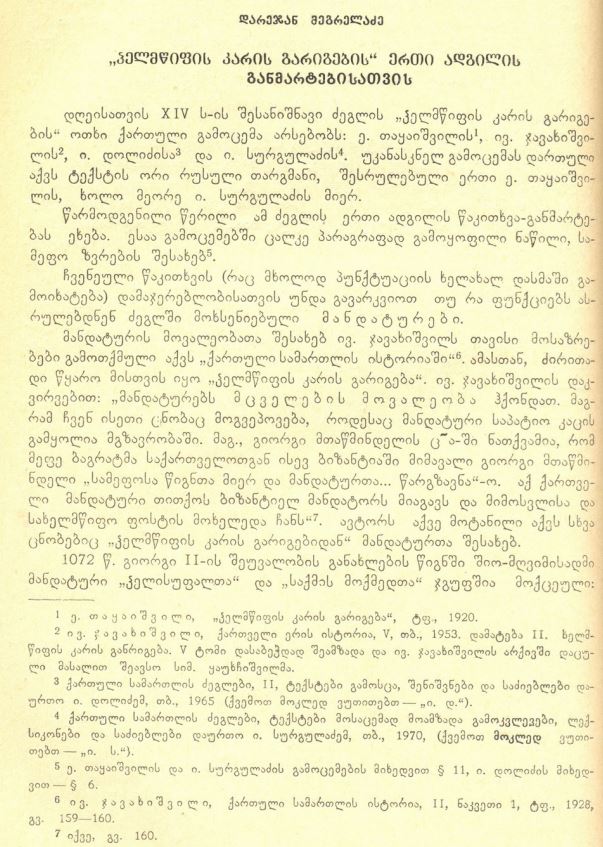 დარეჯან მეგრელაძე
„ჴელმწიფის კარის გარიგების“ ერთი ადგილის
განმარტებისათვის
დღეისათვის XIV ს-ის შესანიშნავი ძეგლის „ჴელმწიფის კარის გარიგე-
ბის“ ოთხი ქართული გამოცემა არსებობს: ე. თაყაიშვილის¹, ივ. ჯავახიშვი-
ლის², ი. დოლიძისა³ და ი. სურგულაძის⁴. უკანასკნელ გამოცემას დართული
აქვს ტექსტის ორი რუსული თარგმანი, შესრულებული ერთი ე. თაყაიშვი-
ლის, ხოლო მეორე ი. სურგულაძის მიერ.
წარმოდგენილი წერილი ამ ძეგლის ერთი ადგილის წაკითხვა-განმარტე-
ბას ეხება. ესაა გამოცემებში ცალკე პარაგრაფად გამოყოფილი ნაწილი, სა-
მეფო ზვრების შესახებ⁵.
ჩვენეული წაკითხვის (რაც მხოლოდ პუნქტუაციის ხელახალ დასმაში გა-
მოიხატება) დამაჯერებლობისათვის უნდა გავარკვიოთ თუ რა ფუნქციებს ას-
რულებდნენ ძეგლში მოხსენიებული მანდატურები.
მანდატურის მოვალეობათა შესახებ ივ. ჯავახიშვილს თავისი მოსაზრე-
ბები გამოთქმული აქვს „ქართული სამართლის ისტორიაში“⁶. ამასთან, ძირითა-
დი წყარო მისთვის იყო „ჴელმწიფის კარის გარიგება“. ივ. ჯავახიშვილის დაკ-
ვირვებით: „მანდატურებს მცველების მოვალეობა ჰქონდათ. მაგ-
რამ ჩვენ ისეთი ცნობაც მოგვეპოვება, როდესაც მანდატური საპატიო კაცის
გამყოლია მგზავრობაში. მაგ., გიორგი მთაწმინდელის ც~ა-ში ნათქვამია, რომ
მეფე ბაგრატმა საქართველოთგან ისევ ბიზანტიაში მიმავალი გიორგი მთაწმი-
ნდელი „სამეფოსა წიგნთა მიერ და მანდატურთა... წარგზავნა“-ო. აქ ქართვე-
ლი მანდატური თითქოს ბიზანტიელ მანდატორს მიაგავს და მიმოსვლისა და
სახელმწიფო ფოსტის მოხელედა ჩანს“⁷. ავტორს აქვე მოტანილი აქვს სხვა
ცნობებიც „ჴელმწიფის კარის გარიგებიდან“ მანდატურთა შესახებ.
1072 წ. გიორგი II-ის შეუვალობის განახლების წიგნში შიო-მღვიმისადმი
მანდატური „ჴელისუფალთა“ და „საქმის მოქმედთა“ ჯგუფშია მოქცეული:
1 ე. თაყაიშვილი, „ჴელმწიფის კარის გარიგება“, ტფ., 1920.
2 ივ. ჯავახიშვილი, ქართველი ერის ისტორია, V, თბ., 1953. დამატება II. ხელმ-
წიფის კარის განრიგება. V ტომი დასაბეჭდად შეამზადა და ივ. ჯავახიშვილის არქივში დაცუ-
ლი მასალით შეავსო სიმ. ყაუხჩიშვილმა.
3 ქართული სამართლის ძეგლები, II, ტექსტები გამოსცა, შენიშვნები და საძიებლები და-
ურთო ი. დოლიძემ, თბ., 1965 (ქვემოთ მოკლედ ვუთითებთ — „ი. დ.“).
4 ქართული სამართლის ძეგლები, ტექსტები მოსაცემად მოამზადა გამოკვლევები, ლექ-
სიკონები და საძიებლები დაურთო ი. სურგულაძემ, თბ., 1970, (ქვემოთ მოკლედ ვუთი-
თებთ — „ი. ს.“).
5 ე. თაყაიშვილის და ი. სურგულაძის გამოცემების მიხედვით § 11, ი. დოლიძის მიხედ-
ვით — § 6.
6 ივ. ჯავახიშვილი, ქართული სამართლის ისტორია, II, ნაკვეთი 1, ტფ., 1928,
გვ. 159—160.
7 იქვე, გვ. 160.